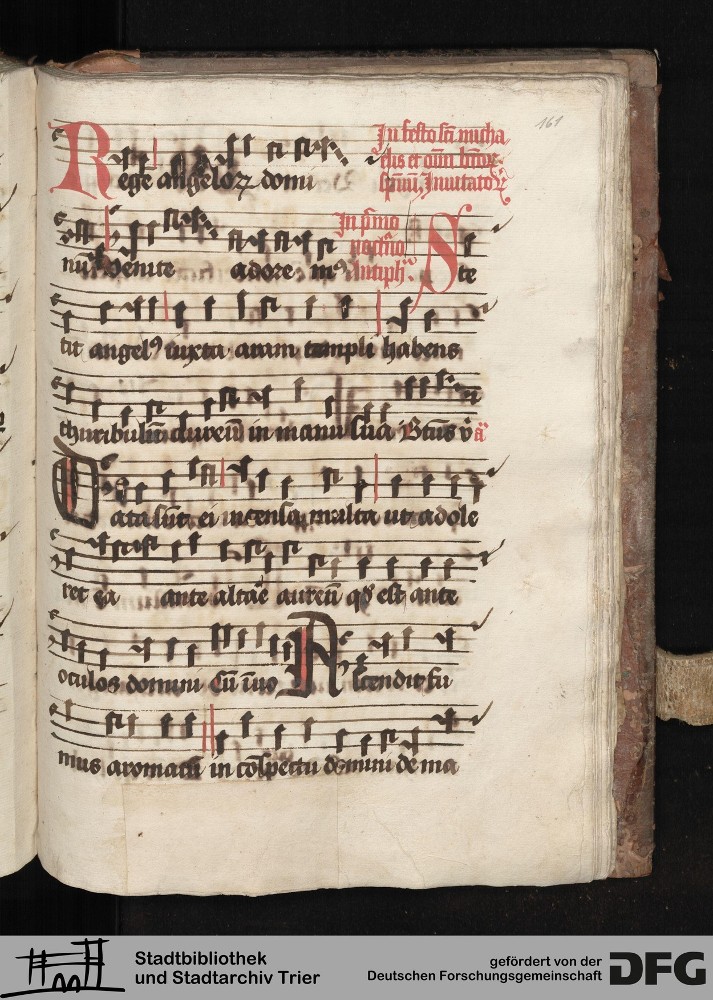 161
In festo sci micha
elis et oīm btōrꝝ
spūū, Invitatoꝝ
Rege angeloꝝ domi
nū Venite adore mꝰ
In pͥmo
noctūo
Antiphͣ
Ste
tit angelꝰ iuxta aram templi habens
thuribulū aureū in manu sua Btūs v̄ ā
Data sūt ei incensa multa ut adole
ret ea ante altāe aureū qd est ante
oculos domini Cū īuo Ascendit fu
mus aromatū in cōspectu domini de ma
Stadtbibliothek
und Stadtarchiv Trier
gefördert von der
Deutschen Forschungsgemeinschaft
DFG